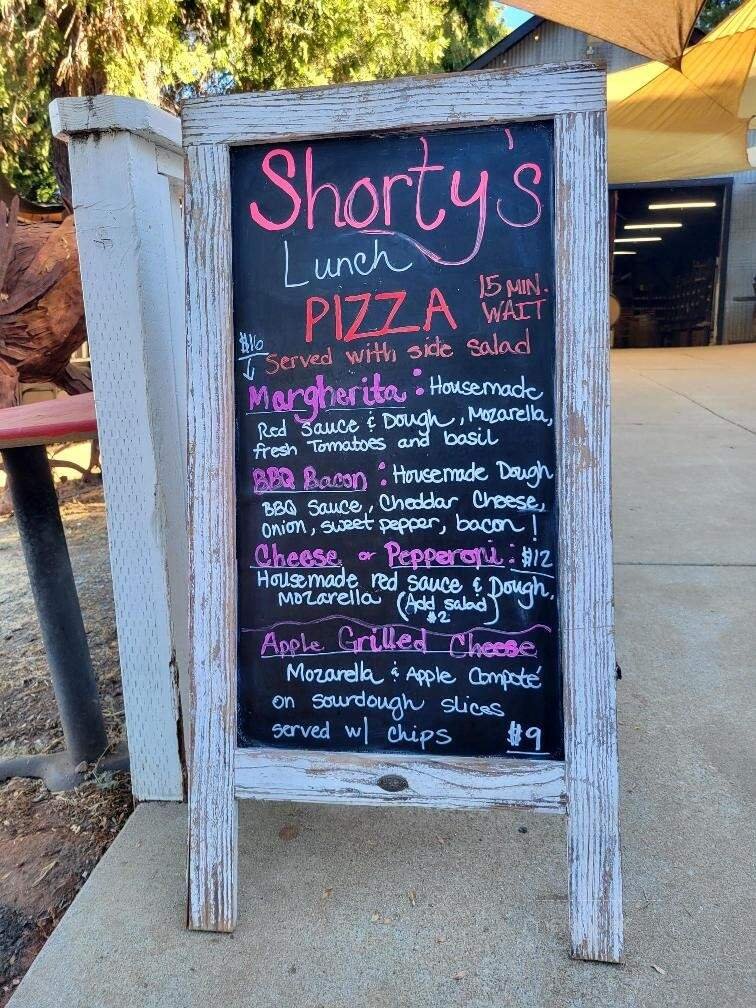 Shorty's
Lunch
PIZZA 15 MIN. WAIT
$16 Served with side salad
Margherita : Housemade
Red Sauce & Dough, Mozarella,
fresh Tomatoes and basil
BBQ Bacon : Housemade Dough
BBQ Sauce, Cheddar Cheese,
Onion, sweet pepper, bacon!
Cheese or Pepperoni : $12
Housemade red sauce & Dough,
Mozarella (Add salad)
$2
Apple Grilled Cheese
Mozarella & Apple Compoté
on sourdough slices
served w/ chips $9